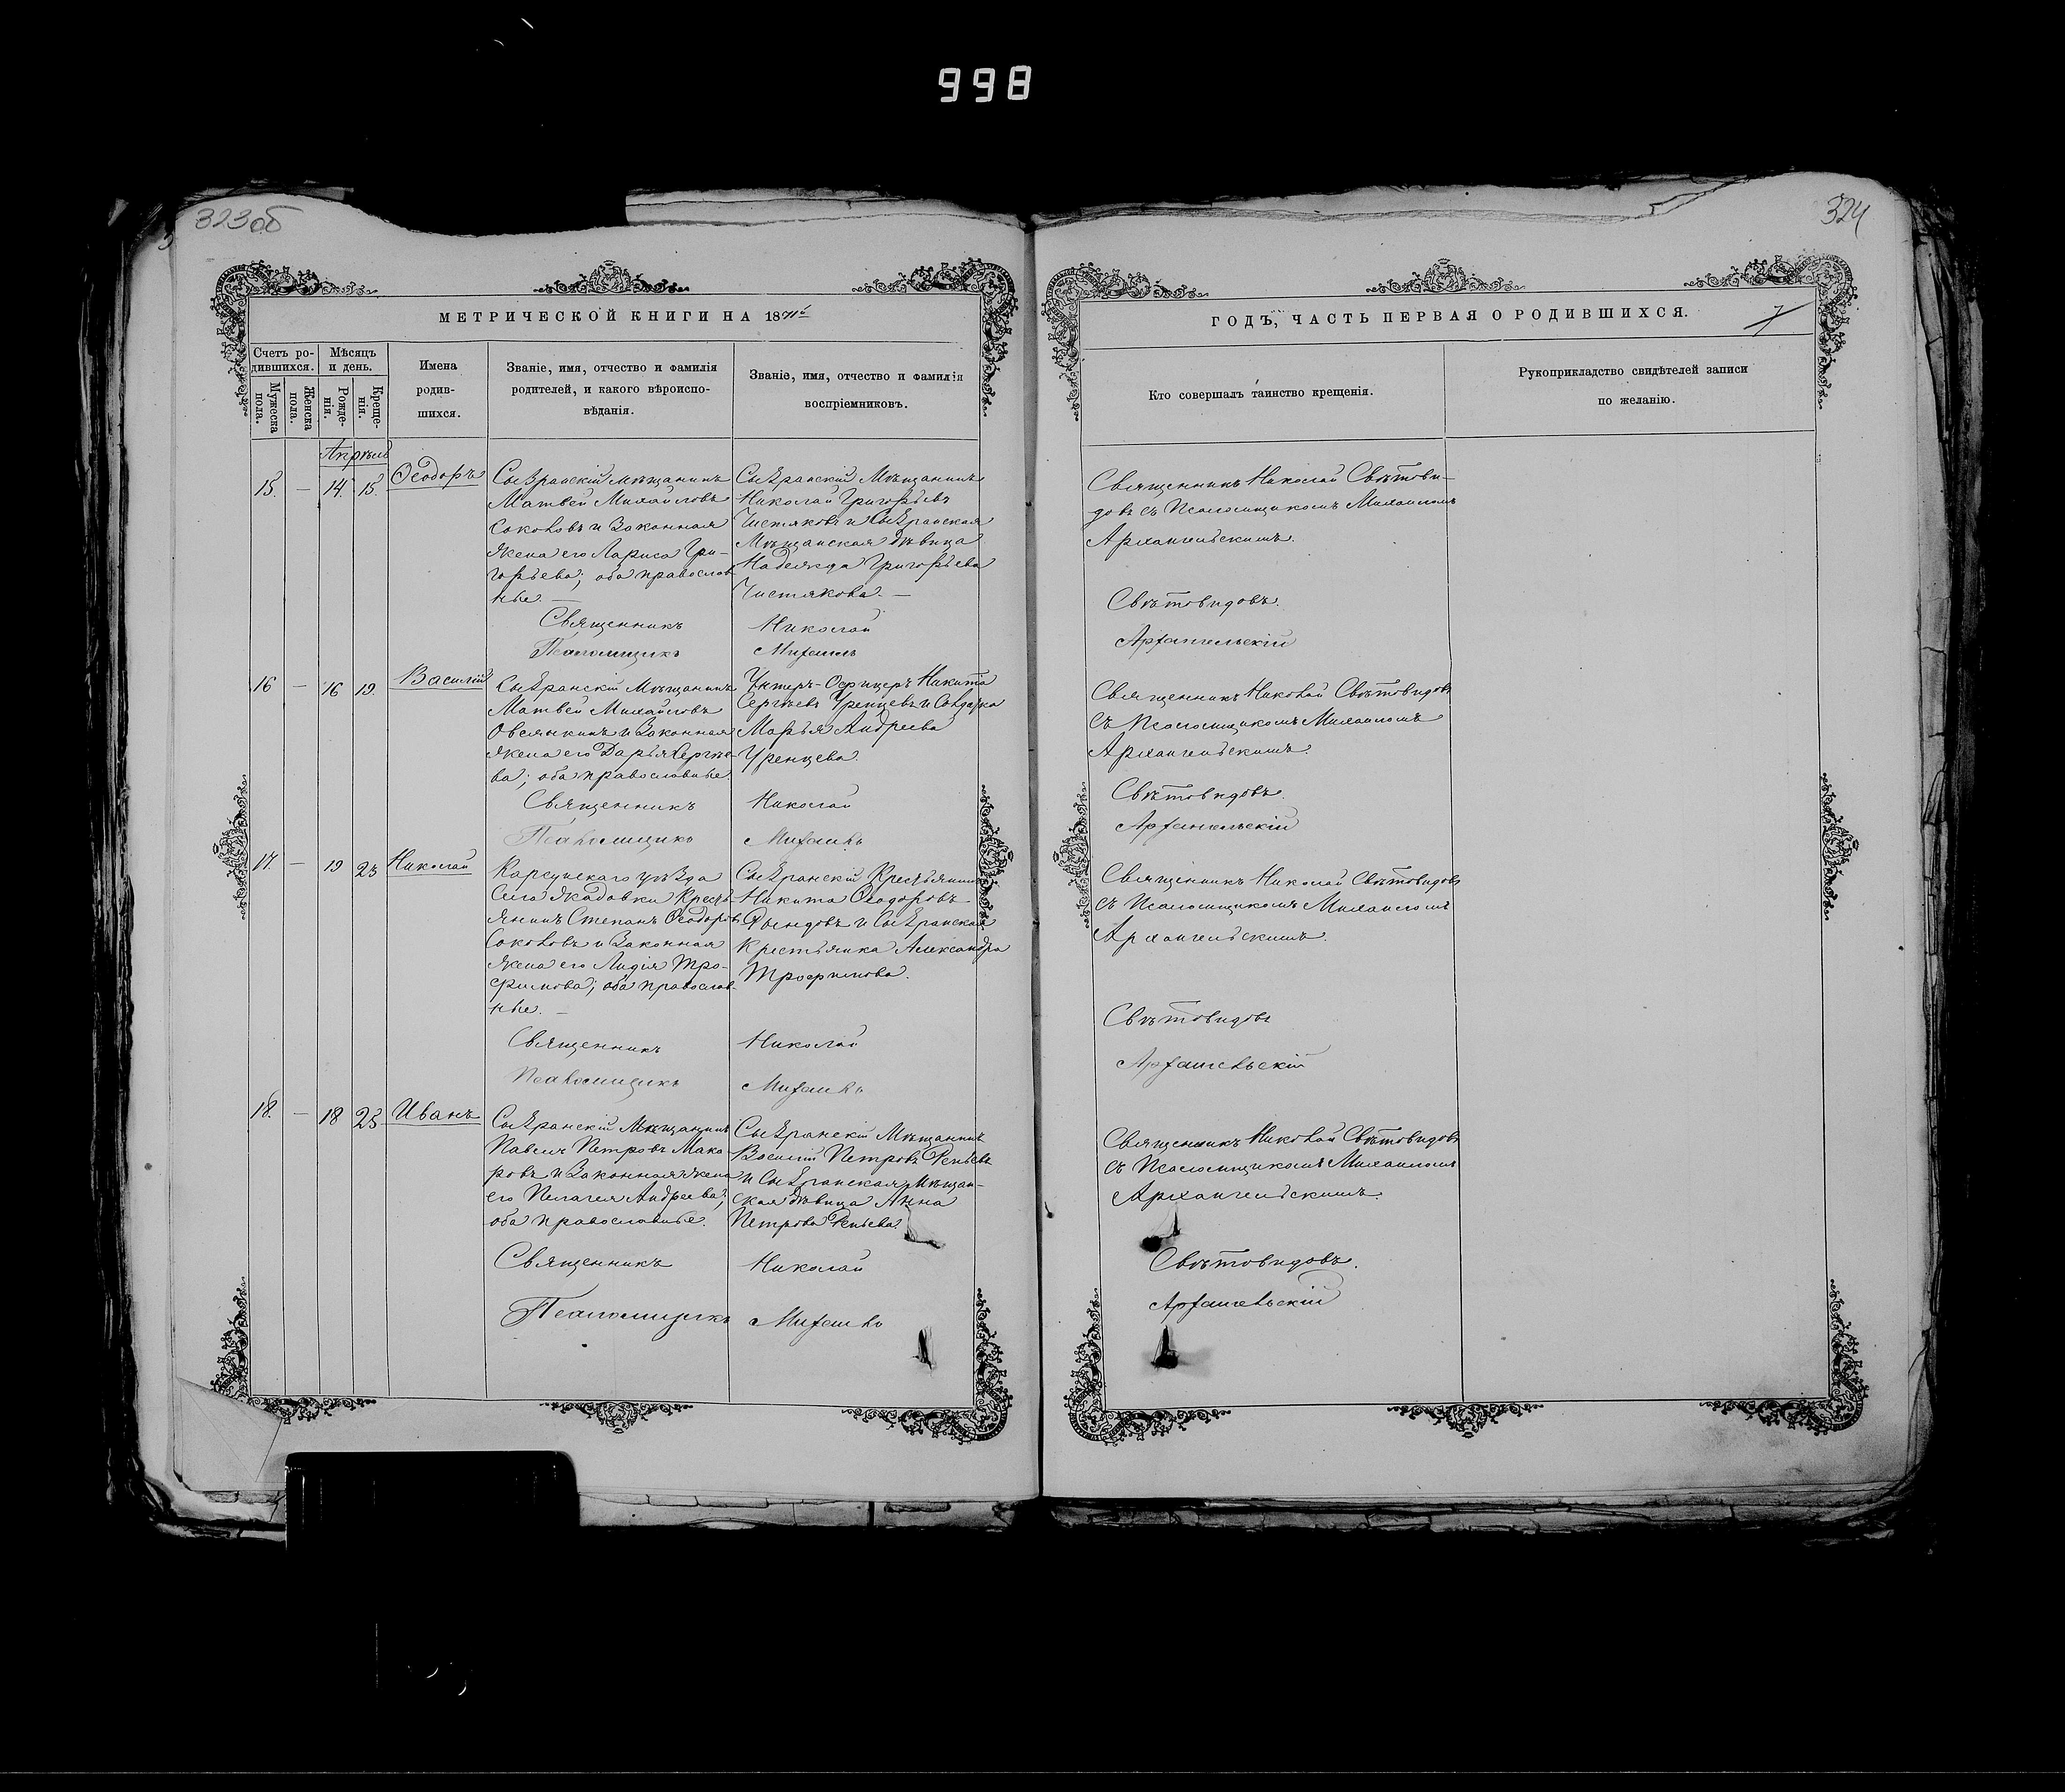 998
323об
324
МЕТРИЧЕСКОЙ КНИГИ НА 1871й
ГОДЪ, ЧАСТЬ ПЕРВАЯ О РОДИВШИХСЯ.
7
Счетъ ро-
дившихся.
Мужеска
пола.
Женска
пола.
Мѣсяцъ
и день.
Рожде-
нія.
Креще-
нія.
Имена
родив-
шихся.
Званіе, имя, отчество и фамилія
родителей, и какого вѣроиспо-
вѣданія.
Званіе, имя, отчество и фамилія
воспріемниковъ.
Кто совершалъ таинство крещенія.
Рукоприкладство свидѣтелей записи
по желанію.
Апрѣль
15. — 14. 15. Ѳеодоръ
Сызранскій мѣщанинъ
Матвей Михайловъ
Соколовъ и законная
жена его Лариса Гри-
горьева; оба православ-
ные. —
Сызранскій Мѣщанинъ
Николай Григорьевъ
Чистяковъ и Сызранская
Мѣщанская дѣвица
Надежда Григорьева
Чистякова. —
Священникъ Николай Свѣтови-
довъ съ Псаломщикомъ Михаиломъ
Архангельскимъ.
Священникъ Николай Свѣтовидовъ.
Псаломщикъ Михаилъ Архангельскій
16 — 16 19. Василій
Сызранскій Мѣщанинъ
Матвей Михайловъ
Овсянкинъ и Законная
жена его Дарья Сергѣе-
ва; оба православные.
Унтеръ-Офицеръ Никита
Сергѣевъ Уренцевъ и Солдатка
Марья Андреева
Уренцева.
Священникъ Николай Свѣтовидовъ
съ Псаломщикомъ Михаиломъ
Архангельскимъ.
Священникъ Николай Свѣтовидовъ.
Псаломщикъ Михаилъ Архангельскій
17. — 19 23 Николай
Карсунскаго уѣзда
Села Жадовки Кресть-
янинъ Степанъ Ѳеодоровъ
Соколовъ и Законная
жена его Лидія Тро-
фимова; оба православ-
ные. —
Сызранскій Крестьянинъ
Никита Ѳеодоровъ
и Сызранская
Крестьянка Александра
Трофимова.
Священникъ Николай Свѣтовидовъ
съ Псаломщикомъ Михаиломъ
Архангельскимъ.
Священникъ Николай Свѣтовидовъ
Псаломщикъ Михаилъ Архангельскій
18. — 18 23 Иванъ
Сызранскій Мѣщанинъ
Павелъ Петровъ Мака-
ровъ и Законная жена
его Пелагея Андреева;
оба православные.
Сызранскій Мѣщанинъ
Василій Петровъ Репьевъ
и Сызранская Мѣщан-
ская дѣвица Анна
Петрова Репьева.
Священникъ Николай Свѣтовидовъ
съ Псаломщикомъ Михаиломъ
Архангельскимъ.
Священникъ Николай Свѣтовидовъ.
Псаломщикъ Михаилъ Архангельскій